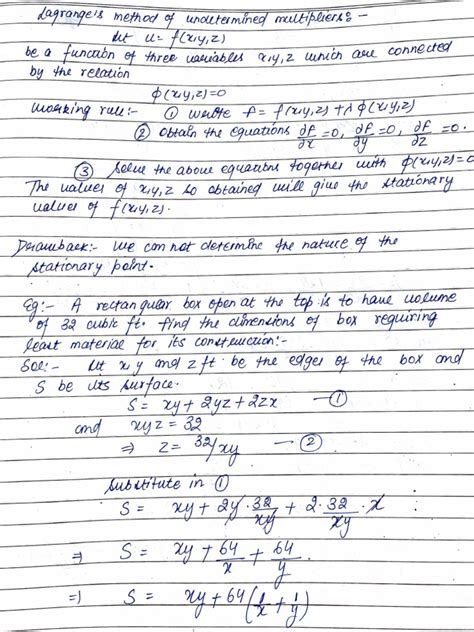 Lagrange's method of undetermined multipliers:-
Let u = f(x,y,z)
be a function of three variables x,y,z which are connected
by the relation
φ(x,y,z)=0
Working rule:- ① write F = f(x,y,z)+λ φ(x,y,z)
② Obtain the equations ∂F/∂x =0, ∂F/∂y =0, ∂F/∂z =0.
③ Solve the above equations together with φ(x,y,z)=0
The values of x,y,z so obtained will give the stationary
values of f(x,y,z).
Drawback:- We can not determine the nature of the
stationary point.
Eg:- A rectangular box open at the top is to have volume
of 32 cubic ft. find the dimensions of box requiring
least material for its construction:-
Sol:- Let x,y and z ft. be the edges of the box and
S be its surface.
S = xy + 2yz + 2zx — ①
and xyz = 32
⇒ z = 32/xy — ②
Substitute in ①
S = xy + 2y · 32/xy + 2 · 32/xy · x
⇒ S = xy + 64/x + 64/y
⇒ S = xy + 64(1/x + 1/y)